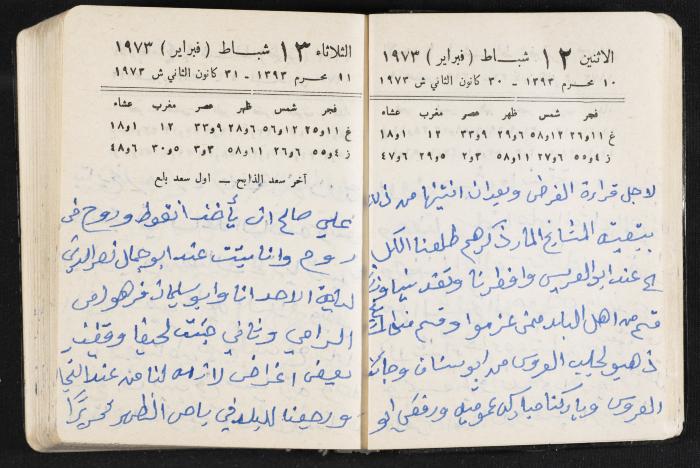 الاثنين ١٢ شباط ( فبراير ) ١٩٧٣
١٠ محرم ١٣٩٣ - ٣٠ كانون الثاني ش ١٩٧٣
فجر شمس ظهر عصر مغرب عشاء
غ ١١و٢٦ ١٢و٥٨ ٦و٢٩ ٩و٣٣ ١٢ ١و١٨
ز ٤و٥٥ ٦و٢٧ ١١و٥٨ ٣و٢ ٥و٢٩ ٦و٤٧
لاجل قراءة الفرض وبعد ان انتهينا من ذلك
المشايخ المار ذكرهم طلعنا الكل
عند ابو العريس وافطرنا
قسم من اهل البلد ممن عزموا وقسم منهم
ذهبو لجلب العروس من ابو سنان
العروس وباركنا مباركه عموميه ورفقي ابو
الثلاثاء ١٣ شباط ( فبراير ) ١٩٧٣
١١ محرم ١٣٩٣ - ٣١ كانون الثاني ش ١٩٧٣
فجر شمس ظهر عصر مغرب عشاء
غ ١١و٢٥ ١٢و٥٦ ٦و٢٨ ٩و٣٣ ١٢ ١و١٨
ز ٤و٥٥ ٦و٢٦ ١١و٥٨ ٣و٣ ٥و٣٠ ٦و٤٨
آخر سعد الذابح – اول سعد بلع
علي صالح ان يأخذ انقوط وروح في
روح وانا بيتت عند ابو جمال نصر الدين
ليلة الاحد انا وابو سليمان فرهود من
الرامي وثاني جئت لحيفا
بعض اغراض لازمه لنا من عند
ورجعنا للبلد في باص الظهر تحريرًا